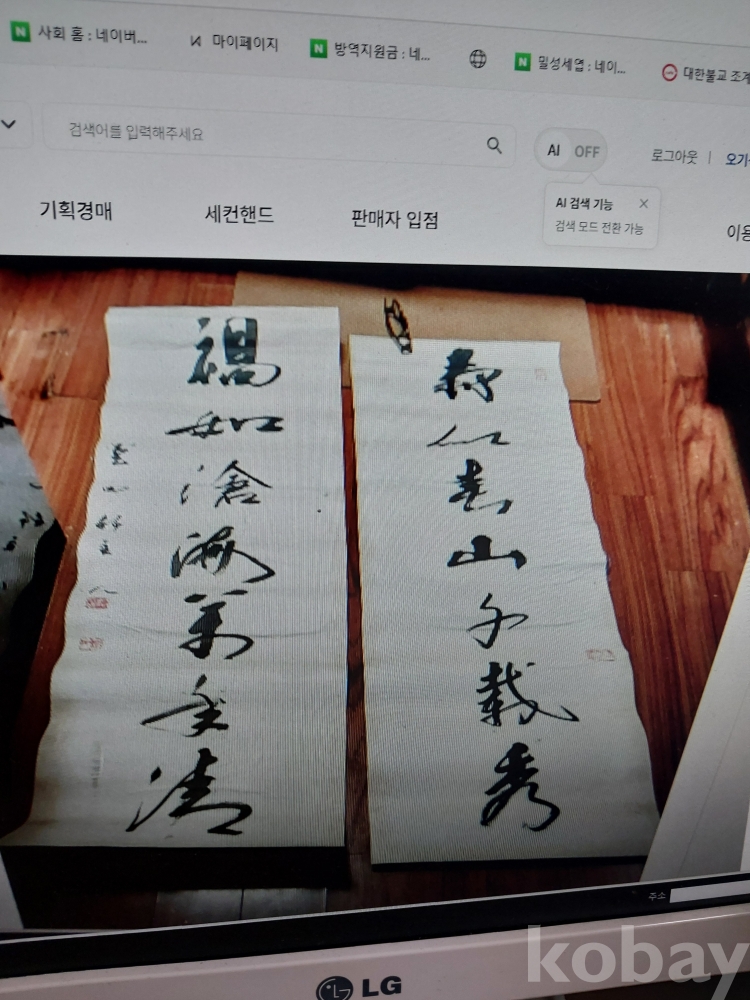 사회 홈 : 네이버...
마이페이지
방역지원금 : 네...
밀성세엽 : 네이...
대한불교 조계
검색어를 입력해주세요
AI OFF
로그아웃
오기
AI 검색 기능
검색 모드 전환 가능
기획경매
세컨핸드
판매자 입점
이용
壽似春山千載秀
福如滄海萬年清
주소
LG
kobay